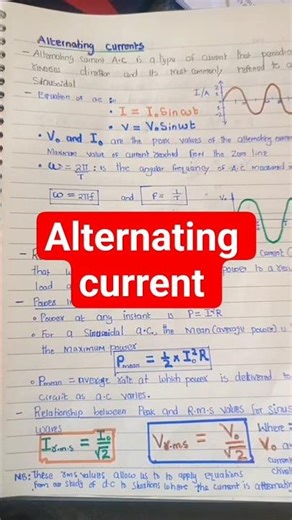 Alternating Currents
- Alternating current A.C is a type of current that
reverses direction and its most commonly referred to
Sinusoidal
- Equation of a.c
• I = I₀Sinωt
• V = V₀Sinωt
I/A
• V₀ and I₀ are the peak values of the alternating
Maximum value of current
from the zero line
• ω = 2π/T : is the angular frequency of a.c measured
ω = 2πf and F = 1/T
Alternating
current
that
load
• Power at any instant is P = I²R
• For a Sinusoidal a.c, the mean (average power) is
the maximum power
Pmean = ½ × I₀²R
• Pmean = average rate at which power is delivered to
circuit as a.c varies.
- Relationship between Peak and R.M.S values for
waves
Ir.m.s = I₀/√2
Vr.m.s = V₀/√2
Where
V₀
NB: These rms values allow us to apply equations
from our study of d.c to situations where the current is